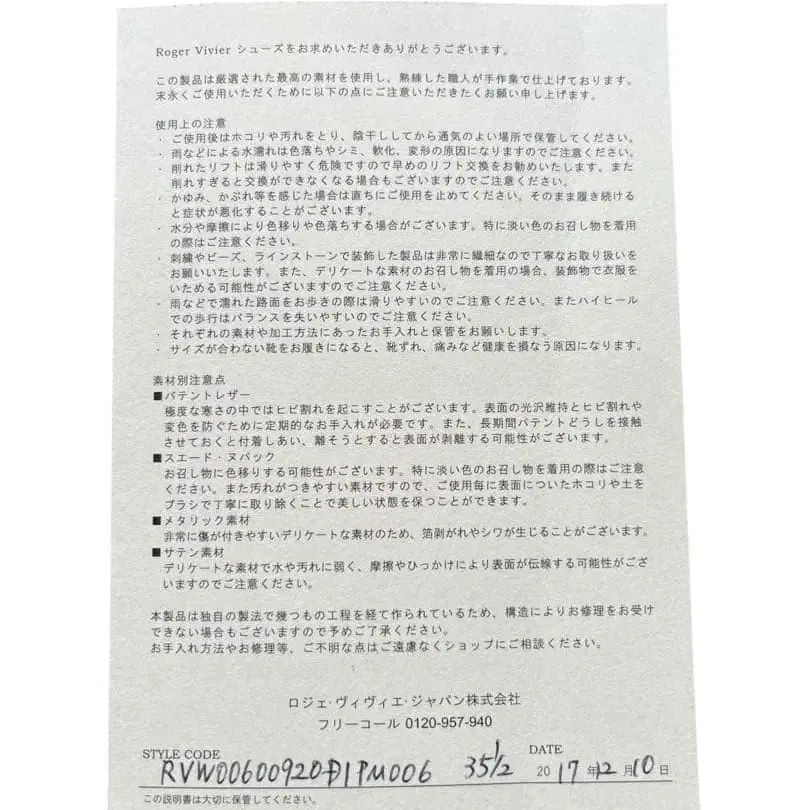 Roger Vivier シューズをお求めいただきありがとうございます。
この製品は厳選された最高の素材を使用し、熟練した職人が手作業で仕上げております。
末永くご使用いただくために以下の点にご注意いただきたくお願い申し上げます。
使用上の注意
・ ご使用後はホコリや汚れをとり、陰干ししてから通気のよい場所で保管してください。
・ 雨などによる水濡れは色落ちやシミ、軟化、変形の原因になりますのでご注意ください。
・ 削れたリフトは滑りやすく危険ですので早めのリフト交換をお勧めいたします。また
削れすぎると交換ができなくなる場合もございますのでご注意ください。
・ かゆみ、かぶれ等を感じた場合は直ちにご使用を止めてください。そのまま履き続ける
と症状が悪化することがございます。
・ 水分や摩擦により色移りや色落ちする場合がございます。特に淡い色のお召し物を着用
の際はご注意ください。
・ 刺繍やビーズ、ラインストーンで装飾した製品は非常に繊細なので丁寧なお取り扱いを
お願いいたします。また、デリケートな素材のお召し物を着用の場合、装飾物で衣服を
いためる可能性がございますのでご注意ください。
・ 雨などで濡れた路面をお歩きの際は滑りやすいのでご注意ください。またハイヒール
での歩行はバランスを失いやすいのでご注意ください。
・ それぞれの素材や加工方法にあったお手入れと保管をお願いします。
・ サイズが合わない靴をお履きになると、靴ずれ、痛みなど健康を損なう原因になります。
素材別注意点
■パテントレザー
極度な寒さの中ではヒビ割れを起こすことがございます。表面の光沢維持とヒビ割れや
変色を防ぐために定期的なお手入れが必要です。また、長期間パテントどうしを接触
させておくと付着しあい、離そうとすると表面が剥離する可能性がございます。
■スエード・ヌバック
お召し物に色移りする可能性がございます。特に淡い色のお召し物を着用の際はご注意
ください。また汚れがつきやすい素材ですので、ご使用毎に表面についたホコリや土を
ブラシで丁寧に取り除くことで美しい状態を保つことができます。
■メタリック素材
非常に傷が付きやすいデリケートな素材のため、箔剥がれやシワが生じることがございます。
■サテン素材
デリケートな素材で水や汚れに弱く、摩擦やひっかけにより表面が伝線する可能性がござ
いますのでご注意ください。
本製品は独自の製法で幾つもの工程を経て作られているため、構造によりお修理をお受け
できない場合もございますので予めご了承ください。
お手入れ方法やお修理等、ご不明な点はご遠慮なくショップにご相談ください。
ロジェ・ヴィヴィエ・ジャパン株式会社
フリーコール 0120-957-940
STYLE CODE RVW00600920D1PM006 35 1/2 DATE 2017年12月10日
この説明書は大切に保管してください。